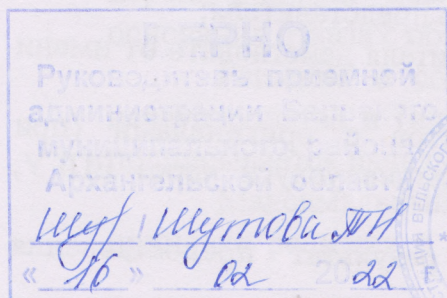 ВЕРНО
Руководитель приемной
администрации Вельского
муниципального района
Архангельской области
Шут / Шутова ТН
« 16 » 02 2022 г
ВЕЛЬСКОГО